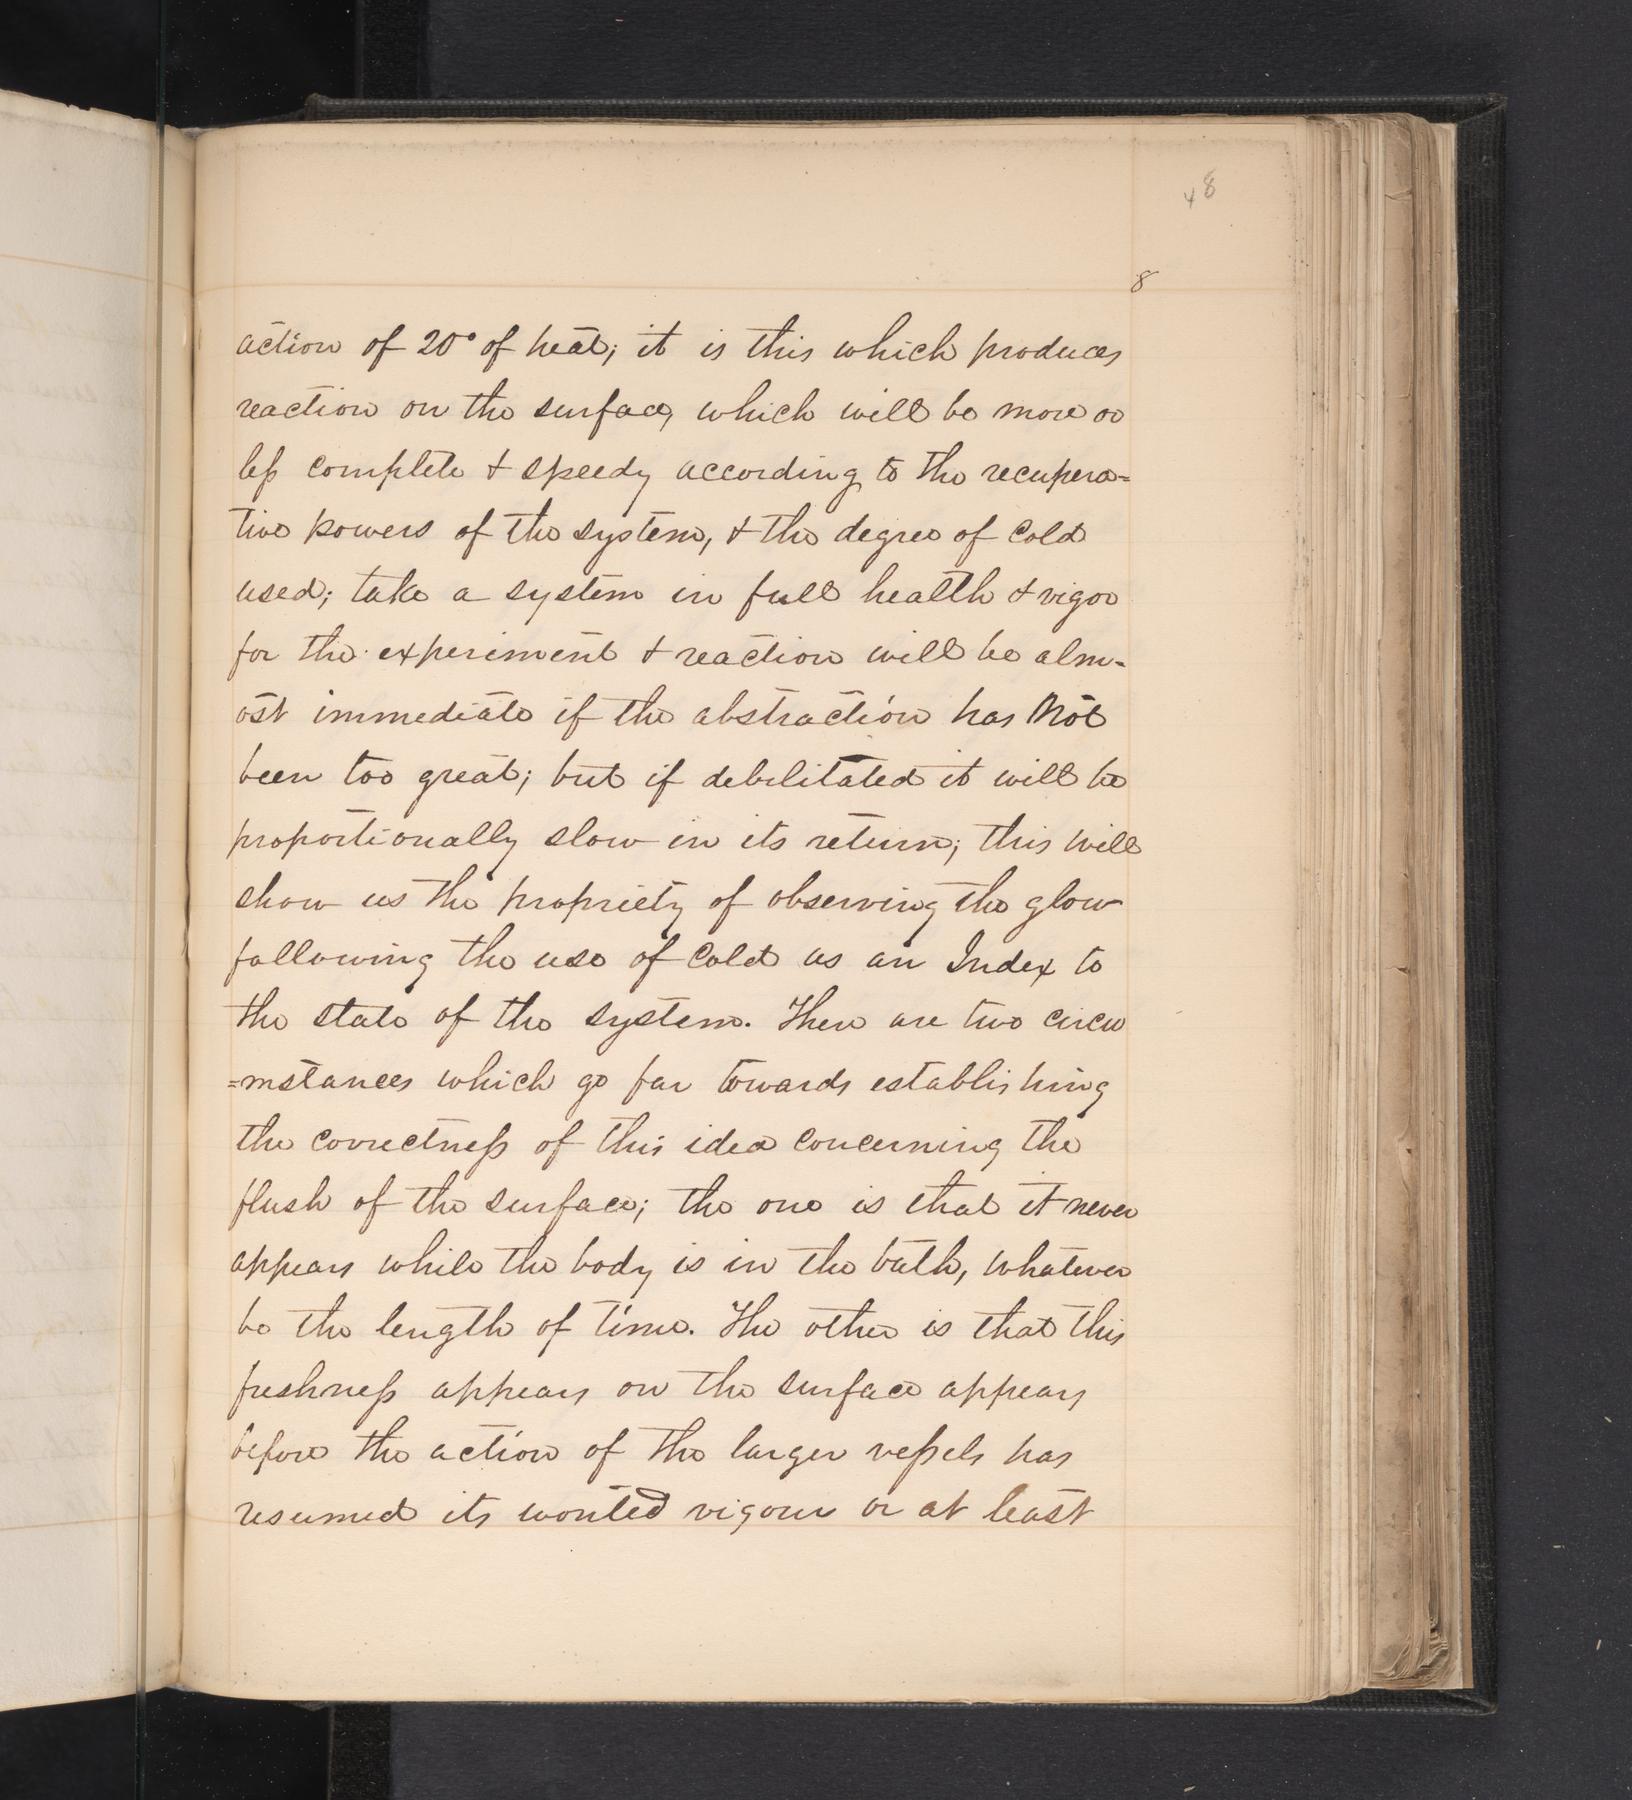 48
8
action of 20° of heat; it is this which produces
reaction on the surface, which will be more or
less complete & speedy according to the recupera=
tive powers of the system, & the degree of Cold
used; take a system in full health & vigor
for the experiment & reaction will be alm-
ost immediate if the abstraction has Not
been too great; but if debilitated it will be
proportionally slow in its return; this will
show us the propriety of observing the glow
following the use of Cold as an Index to
the state of the system. There are two circu
=mstances which go far towards establishing
the correctness of this idea concerning the
flush of the surface; the one is that it never
appears while the body is in the bath, whatever
be the length of time. The other is that this
freshness appears on the surface appears
before the action of the larger vessels has
resumed its wonted vigour or at least